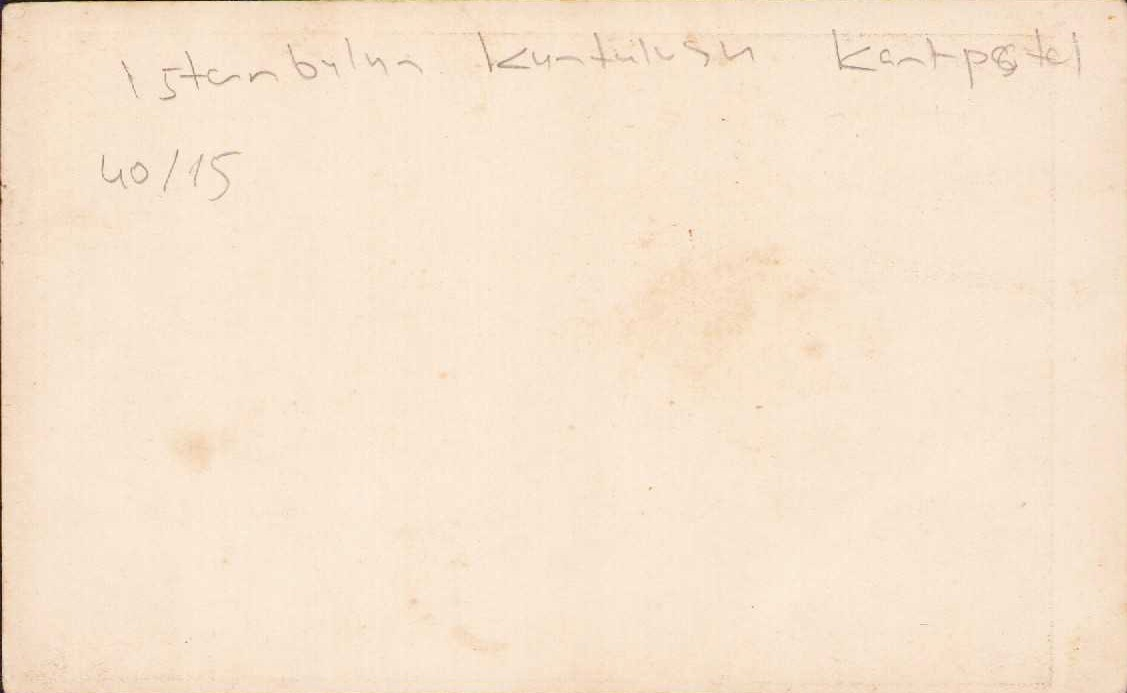 Istanbulun Kurtuluşu Kartpostal
40/15